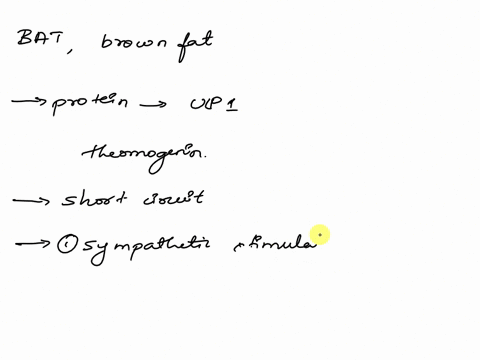 BAT, brown fat
→ protein → UCP 1
thermogenin.
→ short circuit
→ ① sympathetic stimula